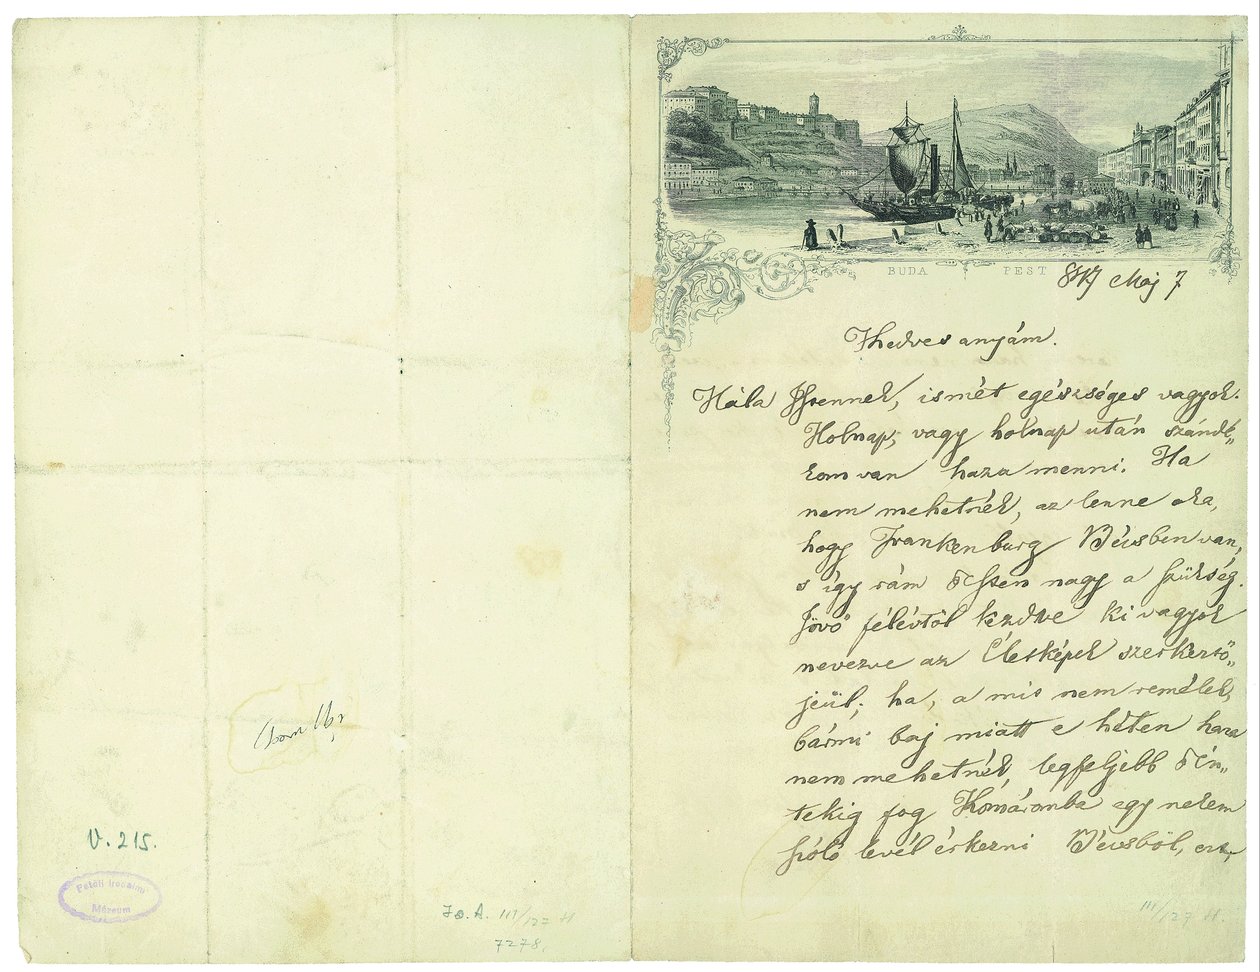 BUDA PEST
847 Maj 7
Kedves anyám.
Hála Istennek, ismét egészséges vagyok.
Holnap, vagy holnap után szándé„
kom van haza menni. Ha
nem mehetnék, az lenne oka,
hogy Frankenburg Bécsben van,
s így rám itten nagy a szükség.
Jövő félévtöl kezdve ki vagyok
nevezve az Életképek szerkesztő„
jeül; ha, a mit nem remélek,
bármi baj miatt e héten haza
nem mehetnék, legfeljebb Pén„
tekig fog Komáromba egy nekem
szóló levél érkezni Bécsből, ezt
V. 215.
Petőfi Irodalmi
Múzeum
III/127 H
7278.
III/127 H.